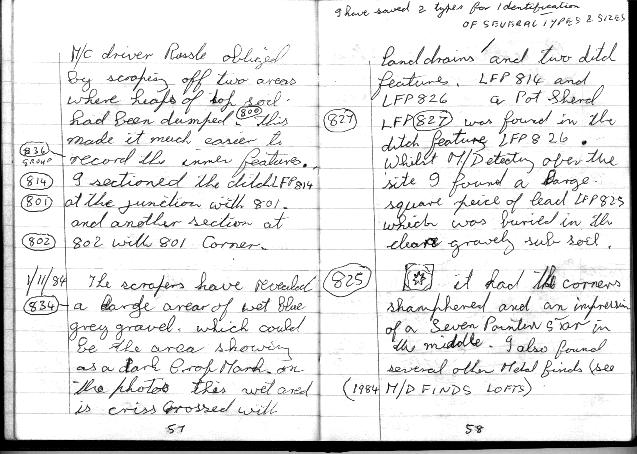 M/C driver Russle obliged
by scraping off two areas
where heaps of top soil
had been dumped 800 this
made it much easier to
836 GROUP record the inner feature.
814 I sectioned the ditch LFP 814
801 at the junction with 801.
and another section at
802 802 with 801 Corner.
1/11/84 The scrapers have revealed
834 a large area of wet blue
grey gravel. which could
be the area showing
as a dark Crop Mark. on
the photos this wet area
is criss crossed with
57
I have saved 2 types for Identification
OF SEVERAL TYPES & SIZES
land drains and two ditch
feature. LFP 814 and
LFP 826 a Pot Sherd
827 LFP 827 was found in the
ditch feature LFP 826.
Whilst M/Detecting over the
site I found a large
square peice of lead LFP 825
which was buried in the
clean gravely sub soil.
825 it had the corners
shamphered and an impression
of a Seven Pointer Star in
the middle. I also found
several other Metal finds (see
(1984 M/D FINDS LOFTS)
58